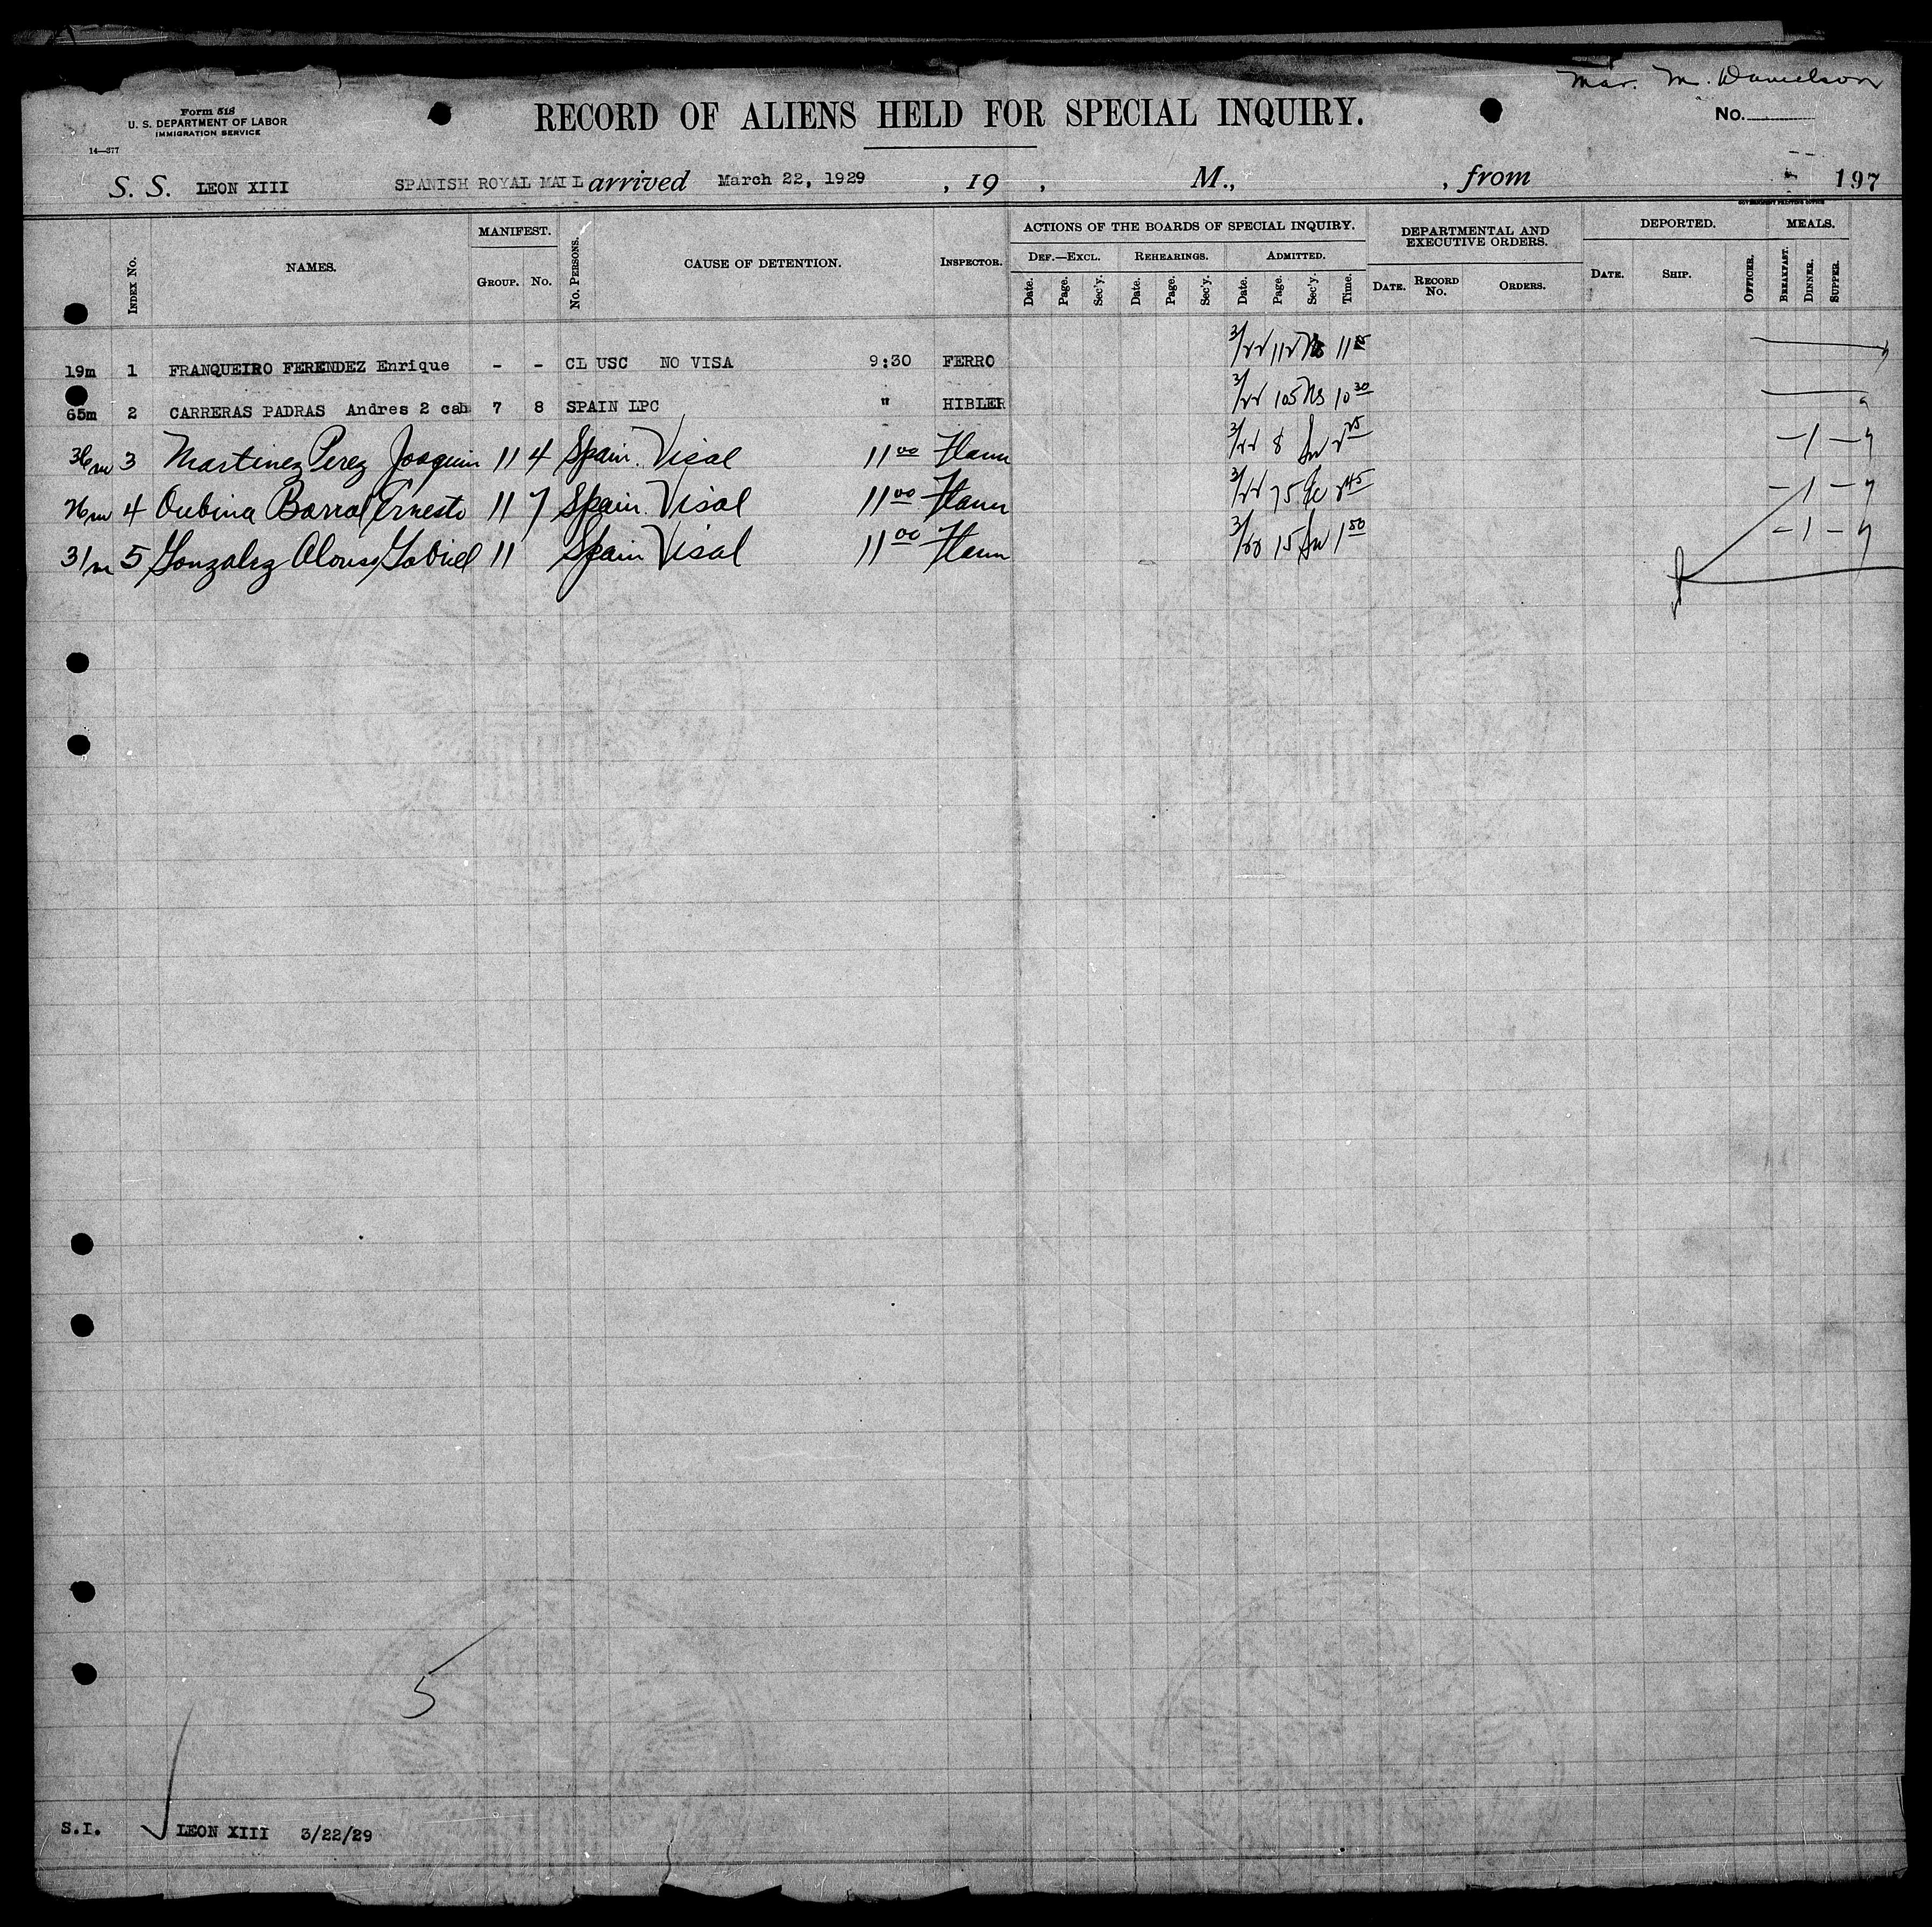 Mar. M. Danielson
Form 518
U. S. DEPARTMENT OF LABOR
IMMIGRATION SERVICE
14—377
RECORD OF ALIENS HELD FOR SPECIAL INQUIRY.
No.
S. S. LEON XIII SPANISH ROYAL MAIL arrived March 22, 1929 , 19 , M., , from 197
GOVERNMENT PRINTING OFFICE
INDEX No. NAMES. MANIFEST. GROUP. No. No. PERSONS. CAUSE OF DETENTION. INSPECTOR.
ACTIONS OF THE BOARDS OF SPECIAL INQUIRY.
DEF.—EXCL. Date. Page. Sec'y. REHEARINGS. Date. Page. Sec'y. ADMITTED. Date. Page. Sec'y. Time.
DEPARTMENTAL AND EXECUTIVE ORDERS. DATE. RECORD No. ORDERS.
DEPORTED. DATE. SHIP. OFFICER. MEALS. BREAKFAST. DINNER. SUPPER.
19m 1 FRANQUEIRO FERENDEZ Enrique - - CL USC NO VISA 9:30 FERRO 3/22 112 11
65m 2 CARRERAS PADRAS Andres 2 cab 7 8 SPAIN LPC " HIBLER 3/22 105 10 30
36m 3 Martinez Perez Joaquin 11 4 Spain. Visal 11 00 3/22 8 2 25
26m 4 Oubina Barral Ernesto 11 7 Spain. Visal 11 00 3/22 75 2 45
31m 5 Gonzalez Alonso Gabriel 11 Spain Visal 11 00 3/22 15 1 50
5
S.I. LEON XIII 3/22/29